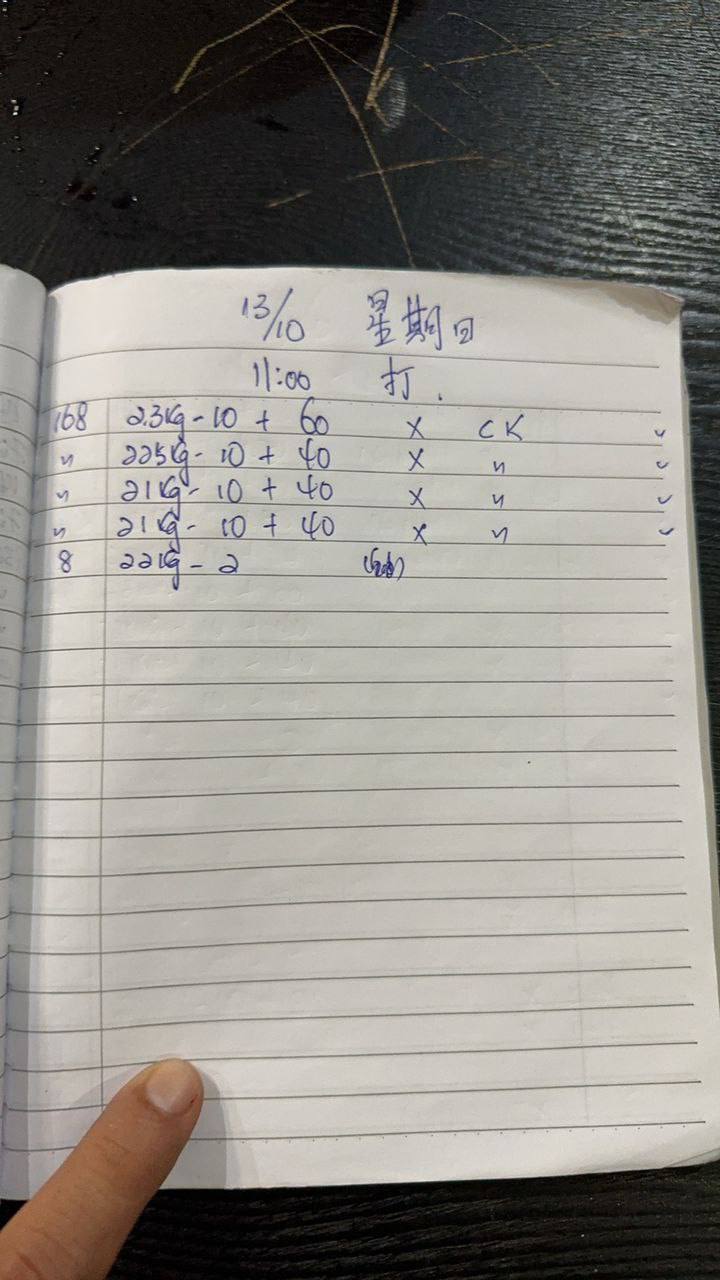 13/10 星期日
11:00 打.
168 2.3kg - 10 + 60 X CK ✓
〃 225kg - 10 + 40 X 〃 ✓
〃 21kg - 10 + 40 X 〃 ✓
〃 21kg - 10 + 40 X 〃 ✓
8 22kg - 2